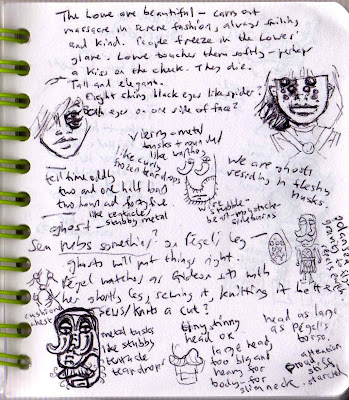 The Lowe are beautiful — carry out
massacre in serene fashion, always smiling
and kind. People freeze in the Lowes'
glare. Lowe touches them softly — perhaps
a kiss on the cheek. They die.
Tall and elegant.
Eight shiny black eyes like spider?
eyes on one side of face?
tusks + rounded
like curly
like walrus
frozen teardrops
We are ghosts
residing in fleshy
husks.
tell time oddly
two and one half
two
like tentacle/
ghost — stubby metal
Sen rubs something? or Pegel's leg —
ghosts will put things right.
Pegel watches as Gideon sits with
her ghostly leg, sewing it, knitting it better.
sews/knits a cut?
cushion
chest
metal tusks
like stubby
tentacle
teardrops
tiny skinny
head or
large head,
too big and
heavy for
body, for
slim neck.
head as large
as Pegel's
torso.
attention
proud,
stiff,
starched